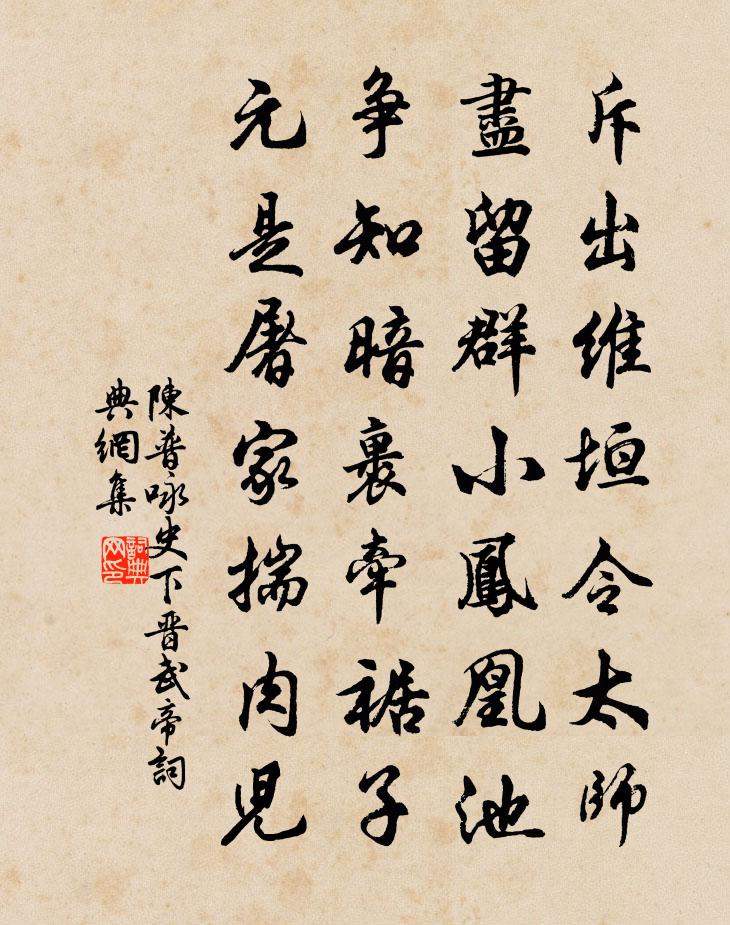 斥出維垣令太師
盡留群小鳳凰池
争知暗裏牽裾子
元是屠家揣肉兒
陳普咏史下晋武帝詞
典網集
詞典
网印